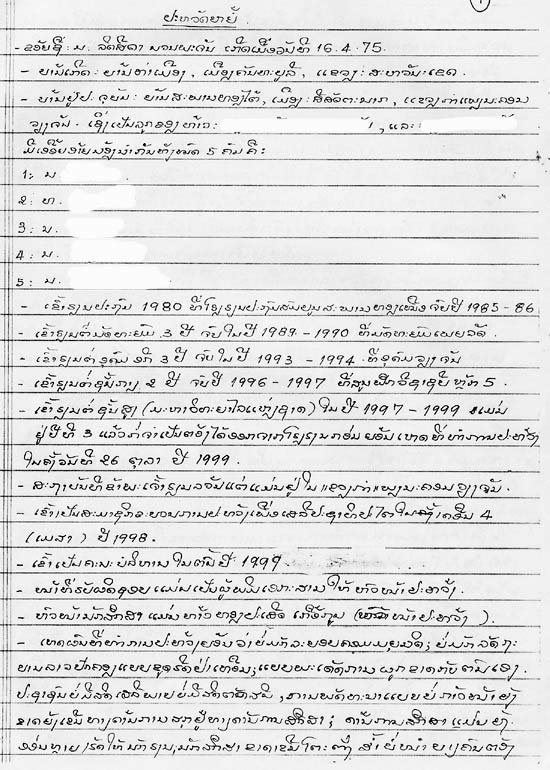 ປະຫວັດຫຍໍ້
- ຂອ້ຍຊື່: ນ. ເກີດເມື່ອງວັນທີ 16.4.75.
- ບ້ານເກີດ: ບ້ານທ່າເມືອງ, ເມືອງຄັນທະບູລີ, ແຂວງ: ສະຫວັນະເຂດ.
- ບ້ານຢູ່ປະຈຸບັນ: ບ້ານສະພານທອງໃຕ້, ເມືອງ: ສີສັດຕະນາກ, ແຂວງກຳແພງນະຄອນ
ວຽງຈັນ. ເຊິ່ງເປັນລູກຂອງທ້າວ: , ແລະ
ມີເອື້ອຍອ້າຍນ້ອງນຳກັນທັງໝົດ 5 ຄົນຄື:
1: ນ
2: ທ.
3: ນ.
4: ນ
5: ນ.
- ເຂົ້າຮຽນປະຖົມ 1980 ທີ່ໂຮງຮຽນປະຖົມສົມບູນສະພານທອງເໜືອຈົບປີ 1985-86
- ເຂົ້າຮຽນຕໍ່ມັດທະຍົມ 3 ປີ ຈົບໃນປີ 1989-1990 ທີ່ມັດທະຍົມເພຍວັດ
- ເຂົ້າຮຽນຕໍ່ອຸດົມອີກ 3 ປີ ຈົບໃນປີ 1993-1994 ທີ່ອຸດົມວຽງຈັນ
- ເຂົ້າຮຽນຕໍ່ຊັ້ນກາງ 2 ປີ ຈົບປີ 1996-1997 ທີ່ສູນຝຶກວິຊາຊີບຫຼັກ 5.
- ເຂົ້າຮຽນຕໍ່ຊັ້ນສູງ (ມະຫາວິທະຍາໄລແຫ່ງຊາດ) ໃນປີ 1997-1999 ແມ່ນ
ຢູ່ປີທີ 3 ແລ້ວກໍ່ຈຳເປັນຕ້ອງໄດ້ອອກຈາກໂຮງຮຽນກ່ອນຍ້ອນເຫດທີ່ທຳການປະທ້ວງ
ໃນຄັ້ງວັນທີ 26 ຕຸລາ ປີ 1999.
- ສະຖາບັນທີ່ຂ້າພະເຈົ້າຮຽນລວ້ນແຕ່ແມ່ນຢູ່ໃນແຂວງກຳແພງນະຄອນວຽງຈັນ.
- ເຂົ້າເປັນສະມາຊິກຂະບວນການປະທ້ວງເພື່ອເສລີປະຊາທິປະໄຕໃນ ເດືອນ 4
(ເມສາ) ປີ 1998.
- ເຂົ້າເປັນຄະນະບໍລິຫານໃນຕົ້ນປີ 1999
- ໜ້າທີ່ຮັບຜິດຊອບແມ່ນເປັນຜູ້ພິມເອກະສານໃຫ້ຫົວໜ້າປະທ້ວງ
- ຫົວໜ້ານັກສຶກສາແມ່ນທ້າວທອງປະເສີດ ເກື້ອກູນ ( ໜ້າປະທ້ວງ ).
- ເຫດຜົນທີ່ທຳການປະທ້ວງຍ້ອນວ່າບໍ່ມັກລະບອບຄອມມູນນິດ; ບໍ່ມັກລັດຖະ
ບານລາວປົກຄອງແບບຂູດຮີດຢູ່ເໜືອ; ແບບຜະເດັດການ ຜູກຂາດກັບຕົນເອງ.
ປະຊາຊົນບໍ່ມີສິດເສລີພາບບໍ່ມີສິດຕັດສິນ, ການພັດທະນາແບບບໍ່ກ້າວໜ້າ ຍັງ
ຂາດຂັ້ນທາງດ້ານການສຸຂຢູ່ທາງດ້ານການສຶກສາ; ດ້ານການສຶກສາແມ່ນຍັງ
ອ່ອນຫຼາຍ ເຮັດໃຫ້ນັກຮຽນ, ນັກສຶກສາ ຂາດເຂີນ ໂຕະ ຕັ່ງ ບໍ່ໜຳ ບາງຄົນຕ້ອງ